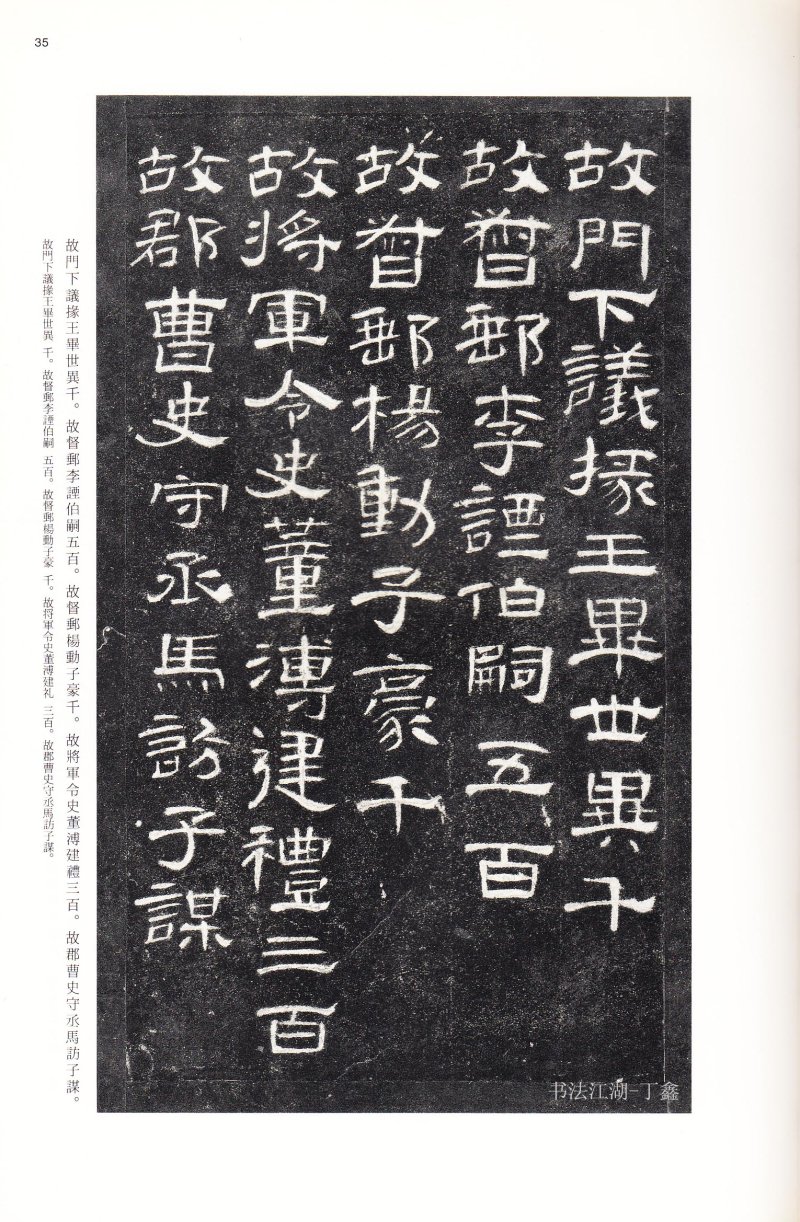 35
故門下議掾王畢世異千
故督郵李諲伯嗣五百
故督郵楊動子豪千
故將軍令史董溥建禮三百
故郡曹史守丞馬訪子謀
故門下議掾王畢世異千。故督郵李諲伯嗣五百。故督郵楊動子豪千。故將軍令史董溥建禮三百。故郡曹史守丞馬訪子謀。
故門下議掾王畢世異 千。故督郵李諲伯嗣 五百。故督郵楊動子豪 千。故将軍令史董溥建礼 三百。故郡曹史守丞馬訪子謀。
书法江湖-丁鑫